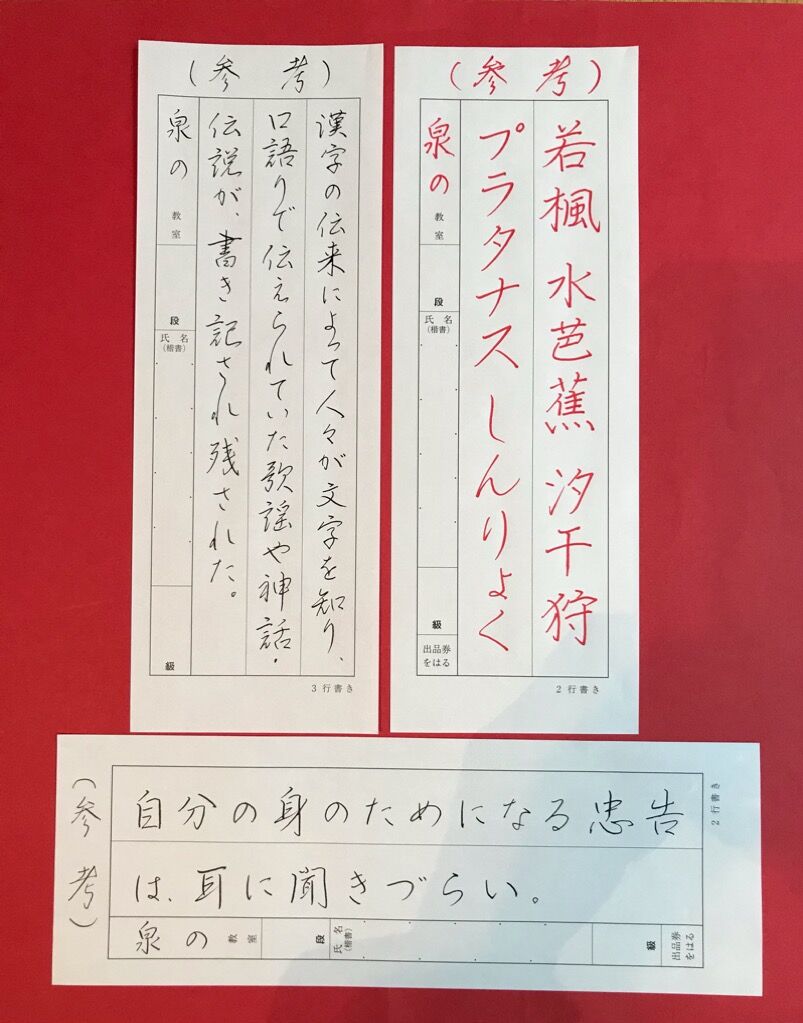 (参考)
漢字の伝来によって人々が文字を知り、
口語りで伝えられていた歌謡や神話・
伝説が、書き記され残された。
泉の 教室 段 氏名 (楷書) 級
3行書き
(参考)
若楓 水芭蕉 汐干狩
プラタナス しんりょく
泉の 教室 段 氏名 (楷書) 級 出品券をはる
2行書き
(参考)
自分の身のためになる忠告
は、耳に聞きづらい。
泉の 教室 段 氏名 (楷書) 級 出品券をはる
2行書き